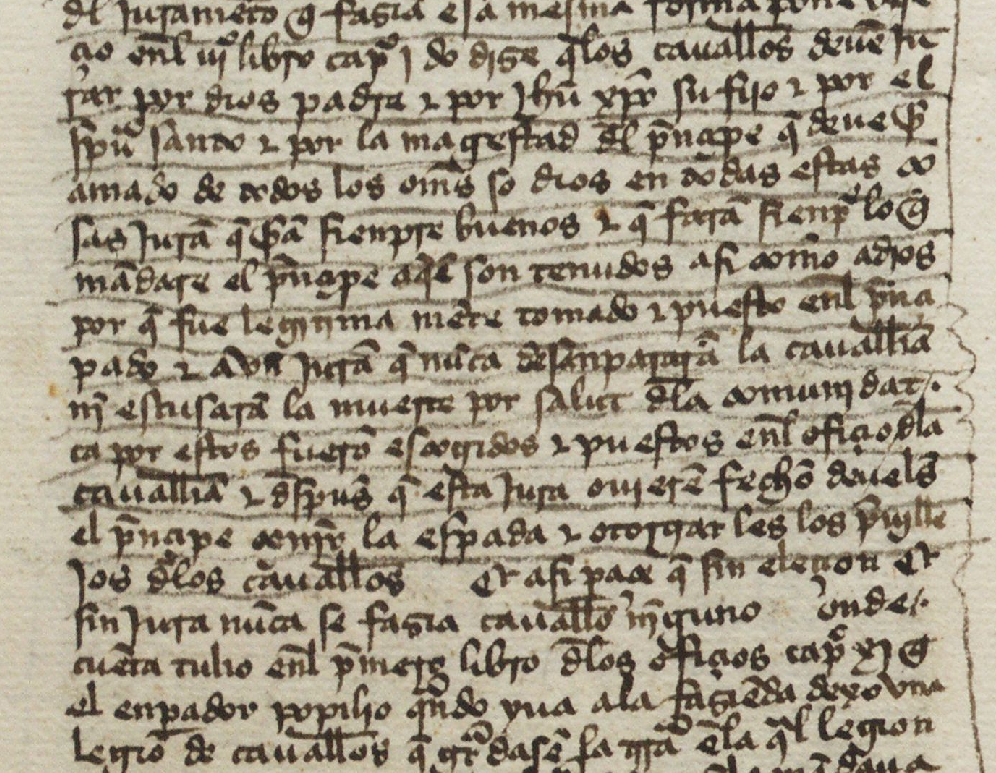 dl juramẽto q̃ fazia esa mesma forma pone
cio enl iiiº libro capº j do dize q̃los cauall̃os deuẽ ju
rar por dios padre ⁊ por jhũ xp̃o su fijo ⁊ por el
sp̃u santo ⁊ por la magestad dl p̃ncipe q̃ deue ser
amado de todos los om̃s so dios en todas estas co
sas jurã q̃ serã sienpre buenos ⁊ q̃ farã sienpr̃ lo q̃
mãdare el p̃ncipe aq̃l son tenudos asi como a dios
por q̃ fue legitima mẽte tomado ⁊ puesto enl p̃nci
pado ⁊ avñ jurã q̃ nũca desanpararã la cauall̃ia
nĩ escusarã la muerte por salut dla comunidat.
ca por estos fuerõ escogidos ⁊ puestos enl ofiçio dla
cauall̃ia ⁊ despues q̃ esta jura ouierẽ fecho deuels
el p̃ncipe çenir la espada ⁊ otorgar les los p̃uille
jos dlos cauall̃os Et asi paçe q̃ sin elecion Et
sin jura nũca se fazia cauall̃o nĩguno onde.
cuẽta tulio enl p̃mero libro dlos ofiçios capº xj q̃
el enpador popilio qñdo yua a la faziẽda dexo vna
legiõ de cauall̃os q̃ gr̃dasẽ la trr̃a ẽla q̃l legion